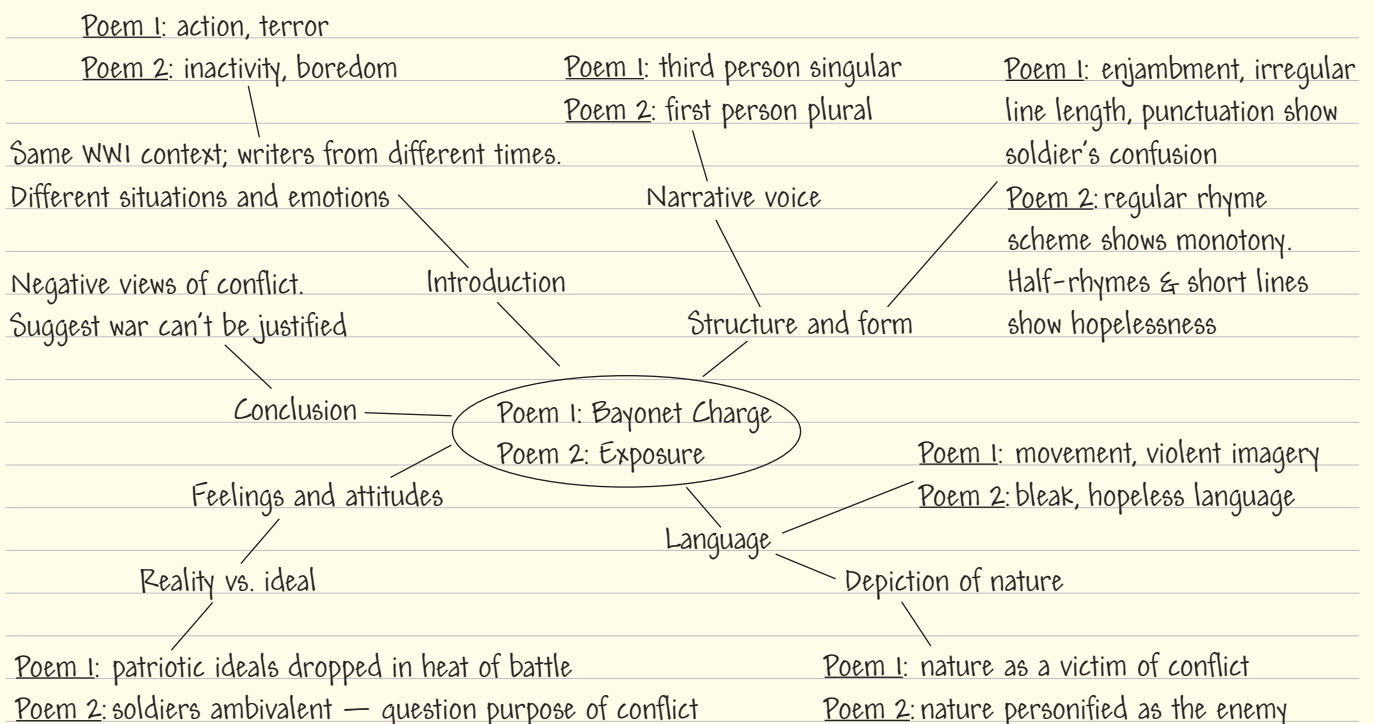 Poem 1: action, terror
Poem 2: inactivity, boredom
Same WWI context; writers from different times.
Different situations and emotions
Introduction
Poem 1: third person singular
Poem 2: first person plural
Narrative voice
Poem 1: enjambment, irregular
line length, punctuation show
soldier's confusion
Poem 2: regular rhyme
scheme shows monotony.
Half-rhymes & short lines
show hopelessness
Structure and form
Negative views of conflict.
Suggest war can't be justified
Conclusion
Poem 1: Bayonet Charge
Poem 2: Exposure
Feelings and attitudes
Reality vs. ideal
Poem 1: patriotic ideals dropped in heat of battle
Poem 2: soldiers ambivalent — question purpose of conflict
Language
Poem 1: movement, violent imagery
Poem 2: bleak, hopeless language
Depiction of nature
Poem 1: nature as a victim of conflict
Poem 2: nature personified as the enemy